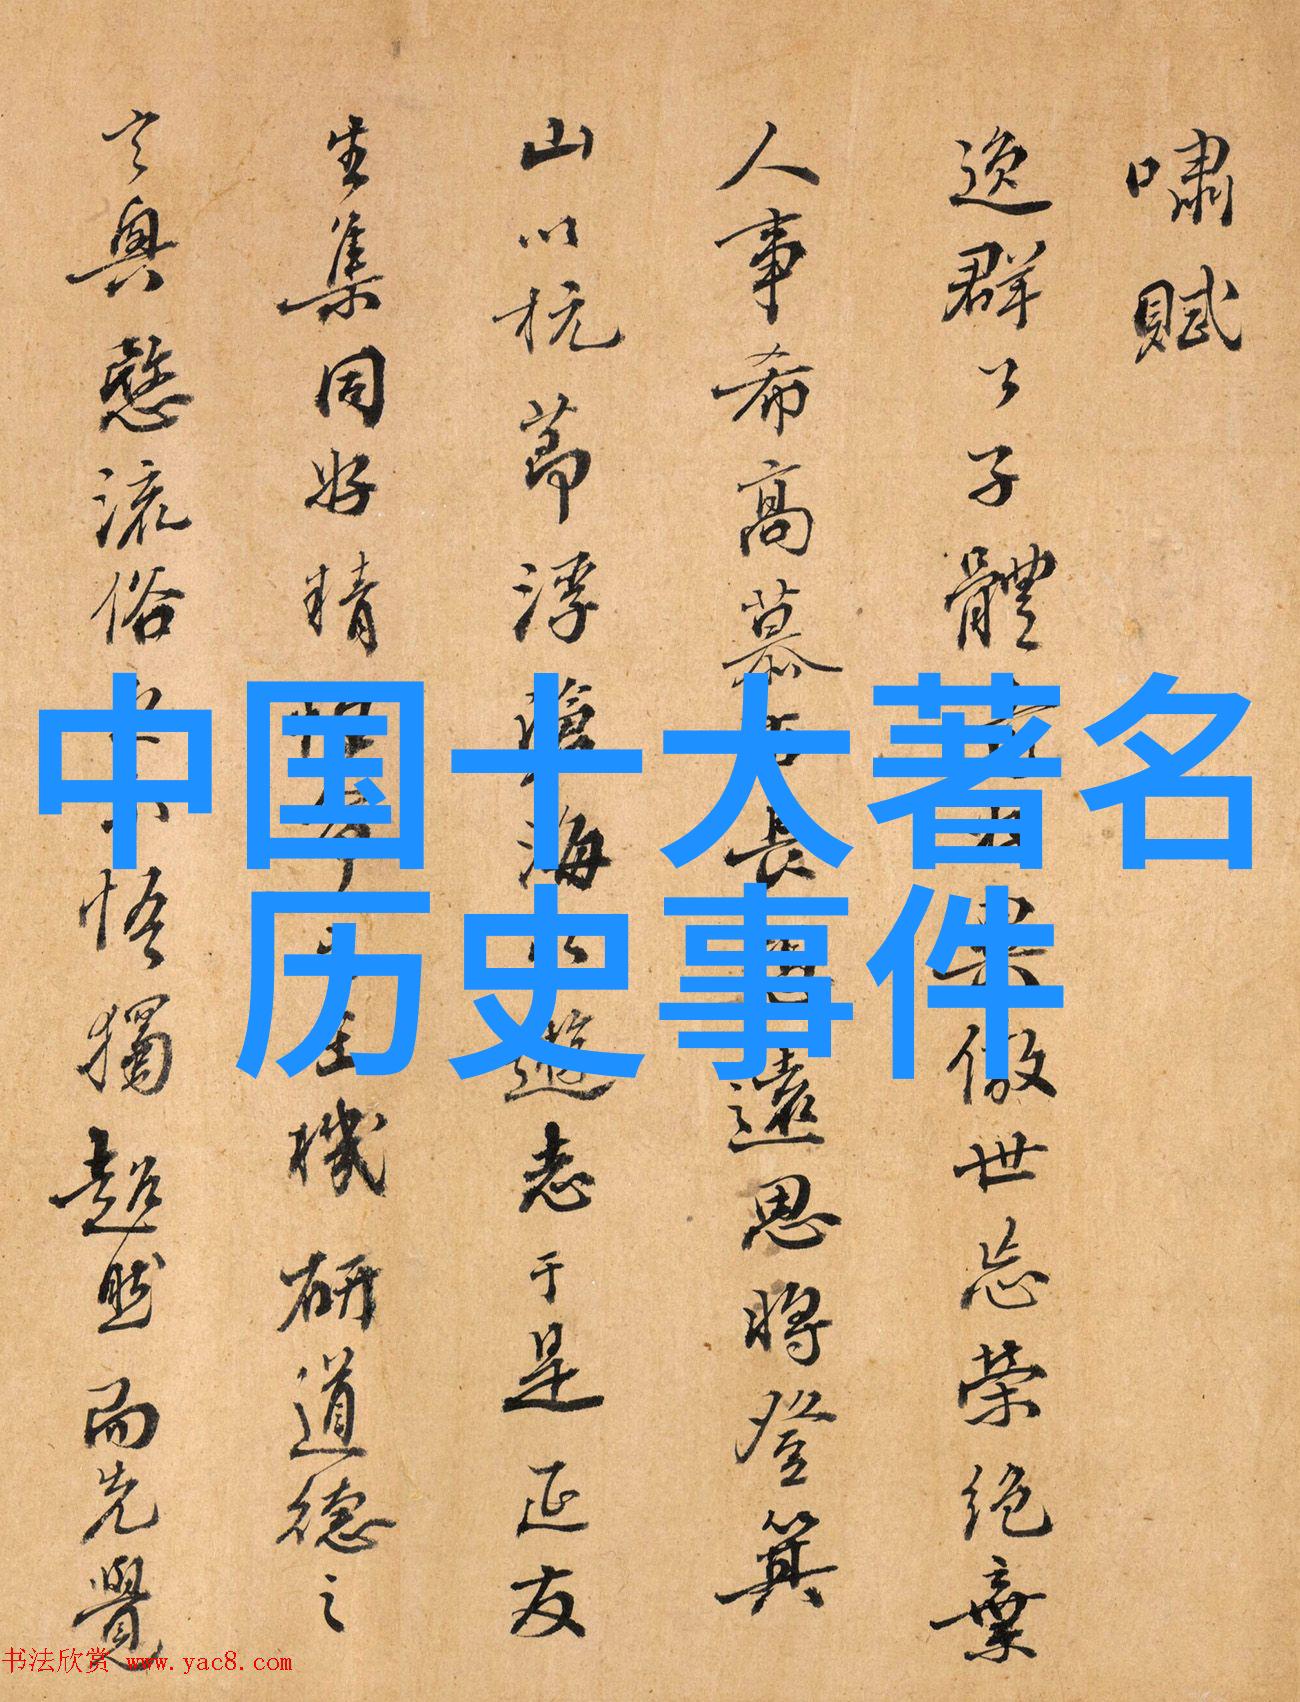 嘯賦
逸群公子體傲世忘榮絕棄
人事希高慕古長遠思將登箕
山以杭莭浮滄海以遊志于是延友
生集同好精性命之至機研道德之
玄奧愍流俗悟獨超然而先覺
中国十大著名
历史事件
书法欣赏 www.yac8.com